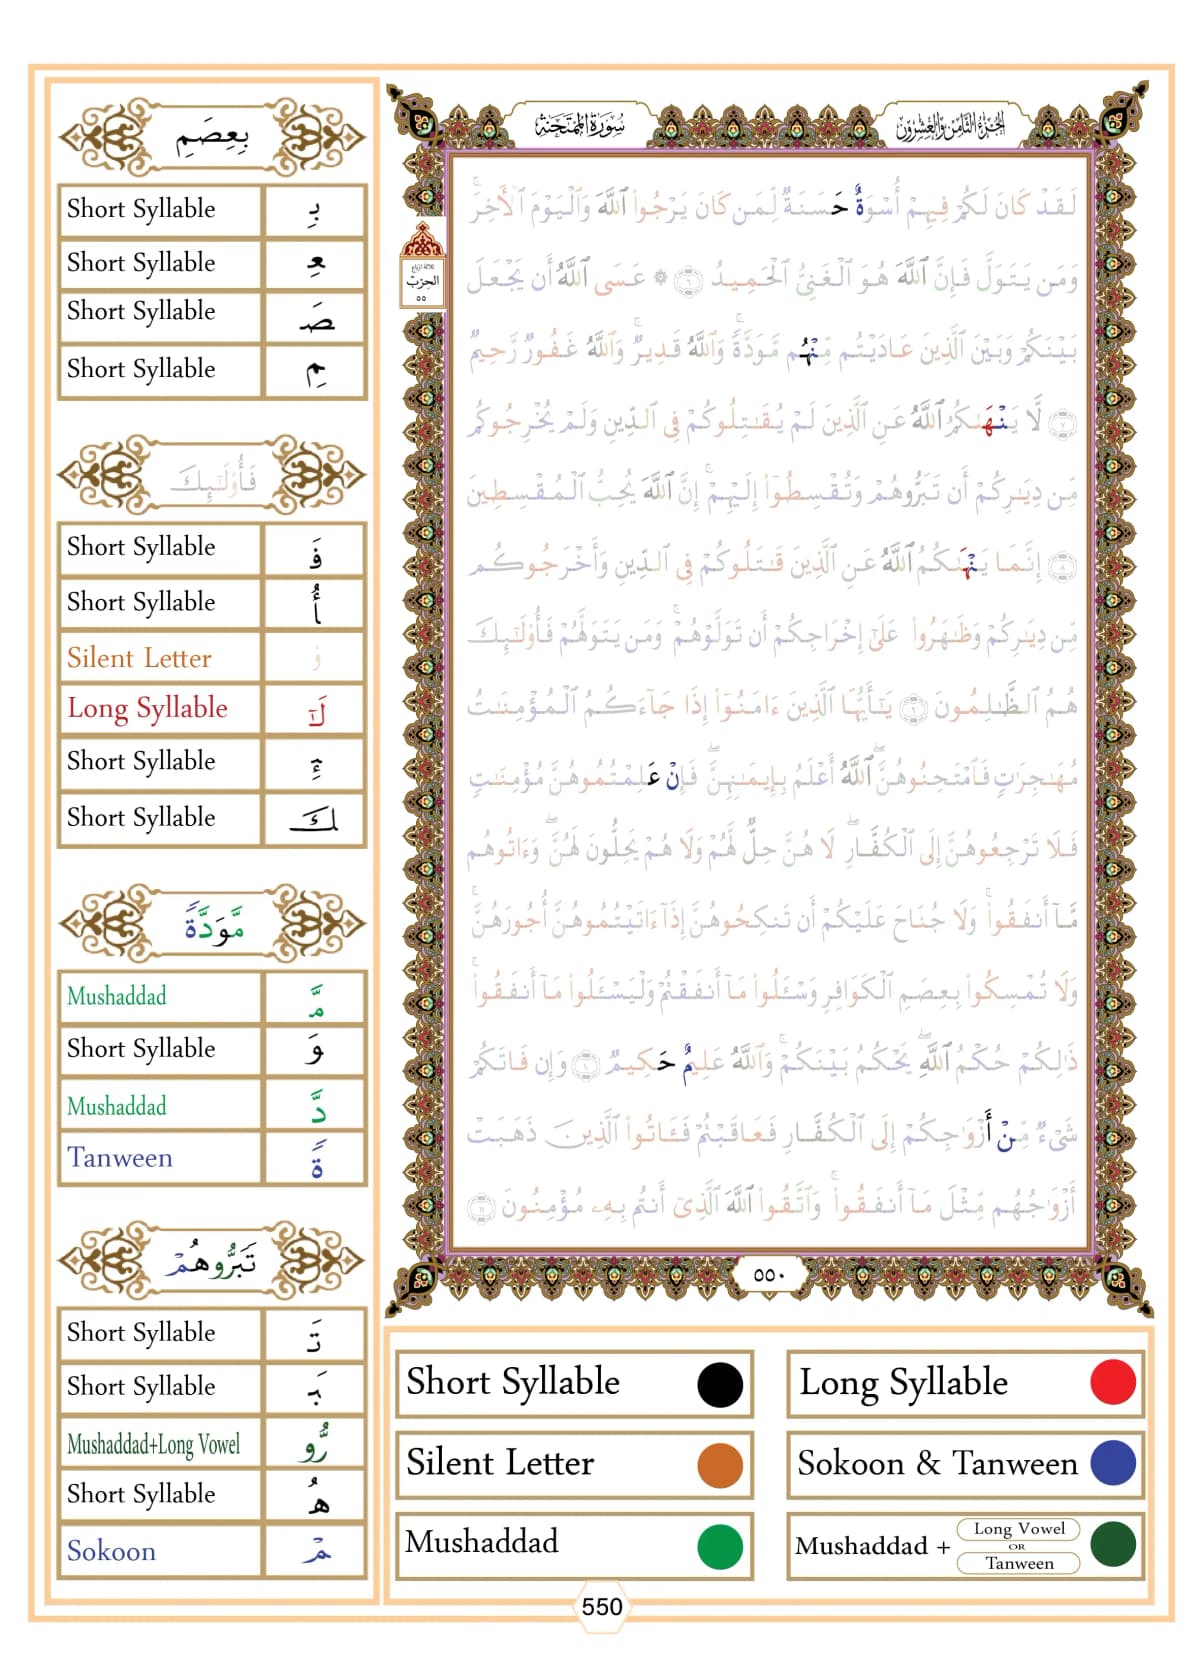 بِعِصَمِ
Short Syllable بِـ
Short Syllable ـعِـ
Short Syllable صَـ
Short Syllable ـمِ
فَأُوْلَٰٓئِكَ
Short Syllable فَـ
Short Syllable أُ
Silent Letter وْ
Long Syllable لَٰٓـ
Short Syllable ـئِـ
Short Syllable ـكَ
مَّوَدَّةً
Mushaddad مَّـ
Short Syllable وَ
Mushaddad دَّ
Tanween ةً
تَبَرُّوهُمْ
Short Syllable تَـ
Short Syllable ـبَـ
Mushaddad+Long Vowel رُّو
Short Syllable هُـ
Sokoon ـمْ
الجزء الثامن والعشرون
سورة الممتحنة
ثلاثة أرباع
الحزب
٥٥
لَقَدْ كَانَ لَكُمْ فِيهِمْ أُسْوَةٌ حَسَنَةٌ لِّمَن كَانَ يَرْجُواْ ٱللَّهَ وَٱلْيَوْمَ ٱلْأَخِرَۚ
وَمَن يَتَوَلَّ فَإِنَّ ٱللَّهَ هُوَ ٱلْغَنِىُّ ٱلْحَمِيدُ ٦ ۞ عَسَى ٱللَّهُ أَن يَجْعَلَ
بَيْنَكُمْ وَبَيْنَ ٱلَّذِينَ عَادَيْتُم مِّنْهُم مَّوَدَّةًۚ وَٱللَّهُ قَدِيرٌۚ وَٱللَّهُ غَفُورٌ رَّحِيمٌ
٧ لَّا يَنْهَىٰكُمُ ٱللَّهُ عَنِ ٱلَّذِينَ لَمْ يُقَٰتِلُوكُمْ فِى ٱلدِّينِ وَلَمْ يُخْرِجُوكُم
مِّن دِيَٰرِكُمْ أَن تَبَرُّوهُمْ وَتُقْسِطُوٓاْ إِلَيْهِمْۚ إِنَّ ٱللَّهَ يُحِبُّ ٱلْمُقْسِطِينَ
٨ إِنَّمَا يَنْهَىٰكُمُ ٱللَّهُ عَنِ ٱلَّذِينَ قَٰتَلُوكُمْ فِى ٱلدِّينِ وَأَخْرَجُوكُم
مِّن دِيَٰرِكُمْ وَظَٰهَرُواْ عَلَىٰٓ إِخْرَاجِكُمْ أَن تَوَلَّوْهُمْۚ وَمَن يَتَوَلَّهُمْ فَأُوْلَٰٓئِكَ
هُمُ ٱلظَّٰلِمُونَ ٩ يَٰٓأَيُّهَا ٱلَّذِينَ ءَامَنُوٓاْ إِذَا جَآءَكُمُ ٱلْمُؤْمِنَٰتُ
مُهَٰجِرَٰتٍ فَٱمْتَحِنُوهُنَّۖ ٱللَّهُ أَعْلَمُ بِإِيمَٰنِهِنَّۖ فَإِنْ عَلِمْتُمُوهُنَّ مُؤْمِنَٰتٍ
فَلَا تَرْجِعُوهُنَّ إِلَى ٱلْكُفَّارِۖ لَا هُنَّ حِلٌّ لَّهُمْ وَلَا هُمْ يَحِلُّونَ لَهُنَّۖ وَءَاتُوهُم
مَّآ أَنفَقُواْۚ وَلَا جُنَاحَ عَلَيْكُمْ أَن تَنكِحُوهُنَّ إِذَآ ءَاتَيْتُمُوهُنَّ أُجُورَهُنَّۚ
وَلَا تُمْسِكُواْ بِعِصَمِ ٱلْكَوَافِرِ وَسْـَٔلُواْ مَآ أَنفَقْتُمْ وَلْيَسْـَٔلُواْ مَآ أَنفَقُواْۚ
ذَٰلِكُمْ حُكْمُ ٱللَّهِۖ يَحْكُمُ بَيْنَكُمْۚ وَٱللَّهُ عَلِيمٌ حَكِيمٌ ١٠ وَإِن فَاتَكُمْ
شَىْءٌ مِّنْ أَزْوَٰجِكُمْ إِلَى ٱلْكُفَّارِ فَعَاقَبْتُمْ فَـَٔاتُواْ ٱلَّذِينَ ذَهَبَتْ
أَزْوَٰجُهُم مِّثْلَ مَآ أَنفَقُواْۚ وَٱتَّقُواْ ٱللَّهَ ٱلَّذِىٓ أَنتُم بِهِۦ مُؤْمِنُونَ ١١
٥٥٠
Short Syllable
Long Syllable
Silent Letter
Sokoon & Tanween
Mushaddad
Mushaddad + Long Vowel
OR
Tanween
550